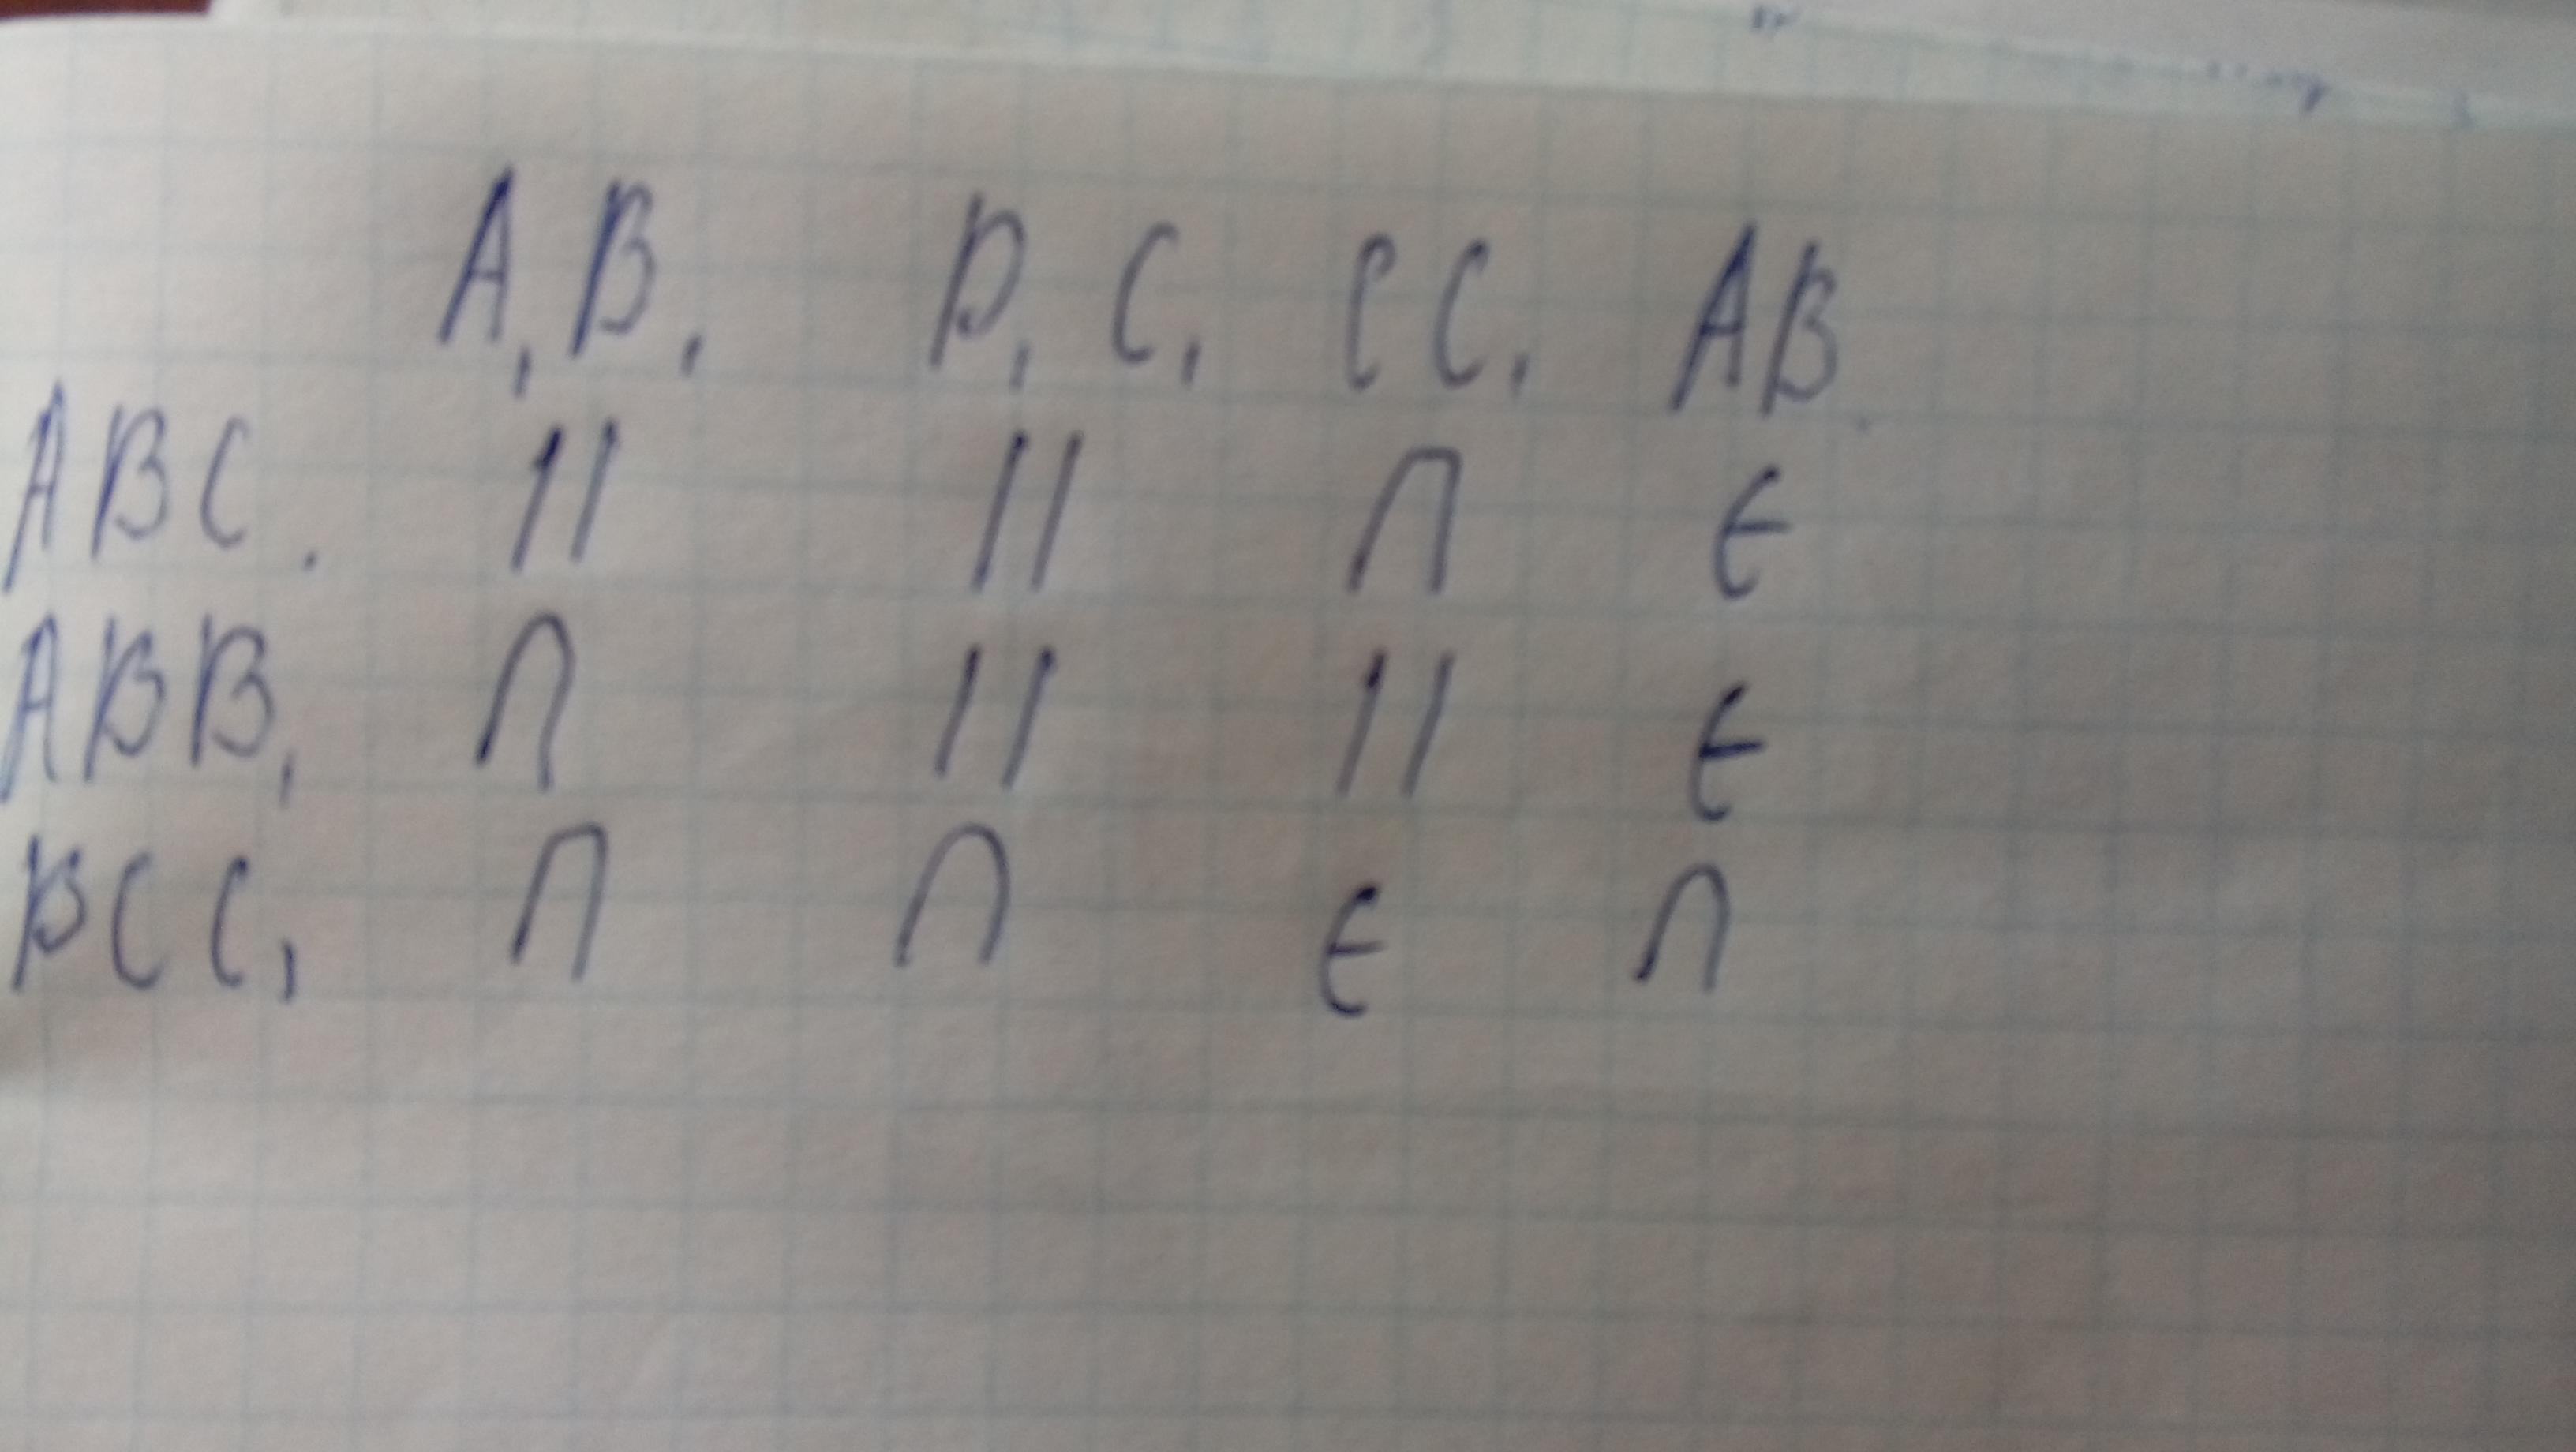 A₁B₁ D₁C₁ CC₁ AB
ABC. || || ∩ ∈
ABB₁ ∩ || || ∈
BCC₁ ∩ ∩ ∈ ∩